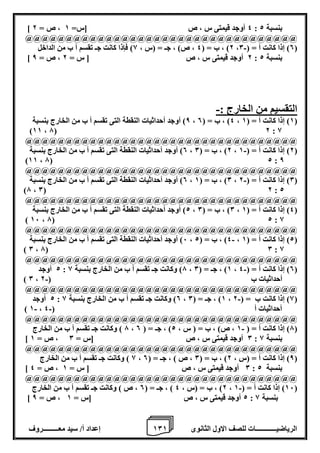 بنسبة ٥ : ٤ أوجد قيمتى س ، ص [س= ١ ، ص = ٢ ]
@@@@@@@@@@@@@@@@@@@@@@@@@@@@@@@@@@@
(٦) إذا كانت أ = (-٣، ٢) ، ب = (٤ ، ص) ، جـ = (س ، ٧) فإذا كانت جـ تقسم أ ب من الداخل
بنسبة ٥ : ٢ أوجد قيمتى س ، ص [ س = ٢ ، ص = ٩ ]
التقسيم من الخارج :-
(١) إذا كانت أ = (١ ، ٤) ، ب = (٦ ، ٩) أوجد أحداثيات النقطة التى تقسم أ ب من الخارج بنسبة
٧ : ٢ (٨ ، ١١)
@@@@@@@@@@@@@@@@@@@@@@@@@@@@@@@@@@@
(٢) إذا كانت أ = (-١ ، ٢) ، ب = (٣ ، ٦) أوجد أحداثيات النقطة التى تقسم أ ب من الخارج بنسبة
٩ : ٥ (٨ ، ١١)
@@@@@@@@@@@@@@@@@@@@@@@@@@@@@@@@@@@
(٣) إذا كانت أ = (-٢ ، ٣) ، ب = (١ ، ٦) أوجد أحداثيات النقطة التى تقسم أ ب من الخارج بنسبة
٥ : ٢ (٣ ، ٨)
@@@@@@@@@@@@@@@@@@@@@@@@@@@@@@@@@@@
(٤) إذا كانت أ = (١ ، ٣) ، ب = (٣ ، ٥) أوجد أحداثيات النقطة التى تقسم أ ب من الخارج بنسبة
٧ : ٥ (٨ ، ١٠)
@@@@@@@@@@@@@@@@@@@@@@@@@@@@@@@@@@@
(٥) إذا كانت أ = (١ ، -٤) ، ب = (٥ ، ٠) أوجد أحداثيات النقطة التى تقسم أ ب من الخارج بنسبة
٧ : ٣ (٨ ، ٣)
@@@@@@@@@@@@@@@@@@@@@@@@@@@@@@@@@@@
(٦) إذا كانت أ = (-٤ ، ١) ، جـ = (٣ ، ٨) وكانت جـ تقسم أ ب من الخارج بنسبة ٧ : ٥ أوجد
أحداثيات ب (-٢ ، ٣)
@@@@@@@@@@@@@@@@@@@@@@@@@@@@@@@@@@@
(٧) إذا كانت ب = (-٢ ، ١) ، جـ = (٣ ، ٦) وكانت جـ تقسم أ ب من الخارج بنسبة ٧ : ٥ أوجد
أحداثيات أ (-٤ ، -١)
@@@@@@@@@@@@@@@@@@@@@@@@@@@@@@@@@@@
(٨) إذا كانت أ = (-١ ، ص) ، ب = ( س ، ٥) ، جـ = ( ٦ ، ٨ ) وكانت جـ تقسم أ ب من الخارج
بنسبة ٧ : ٣ أوجد قيمتى س ، ص [س = ٣ ، ص = ١ ]
@@@@@@@@@@@@@@@@@@@@@@@@@@@@@@@@@@@
(٩) إذا كانت أ = (س ، ٢) ، ب = (٣ ، ص ) ، جـ = (٦ ، ٧ ) وكانت جـ تقسم أ ب من الخارج
بنسبة ٥ : ٣ أوجد قيمتى س ، ص [ س = ١ ، ص = ٤ ]
@@@@@@@@@@@@@@@@@@@@@@@@@@@@@@@@@@@
(١٠) إذا كانت أ = (-١ ، ٢) ، ب = (س ، ٤ ) ، جـ = (٦ ، ص ) وكانت جـ تقسم أ ب من الخارج
بنسبة ٧ : ٥ أوجد قيمتى س ، ص [س = ١ ، ص = ٩ ]
الرياضيـــــــــات للصف الاول الثانوى ١٣١ إعداد أ/ سيد معـــــــروف